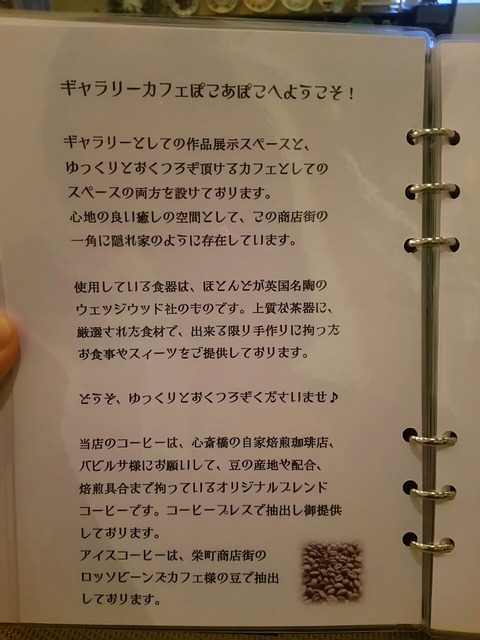 ギャラリーカフェぽこあぽこへようこそ！
ギャラリーとしての作品展示スペースと、
ゆっくりとおくつろぎ頂けるカフェとしての
スペースの両方を設けております。
心地の良い癒しの空間として、この商店街の
一角に隠れ家のように存在しています。
使用している食器は、ほとんどが英国名陶の
ウェッジウッド社のものです。上質な茶器に、
厳選された食材で、出来る限り手作りに拘った
お食事やスィーツをご提供しております。
どうぞ、ゆっくりとおくつろぎくださいませ♪
当店のコーヒーは、心斎橋の自家焙煎珈琲店、
バビルサ様にお願いして、豆の産地や配合、
焙煎具合まで拘っているオリジナルブレンド
コーヒーです。コーヒープレスで抽出し御提供
しております。
アイスコーヒーは、栄町商店街の
ロッソビーンズカフェ様の豆で抽出
しております。